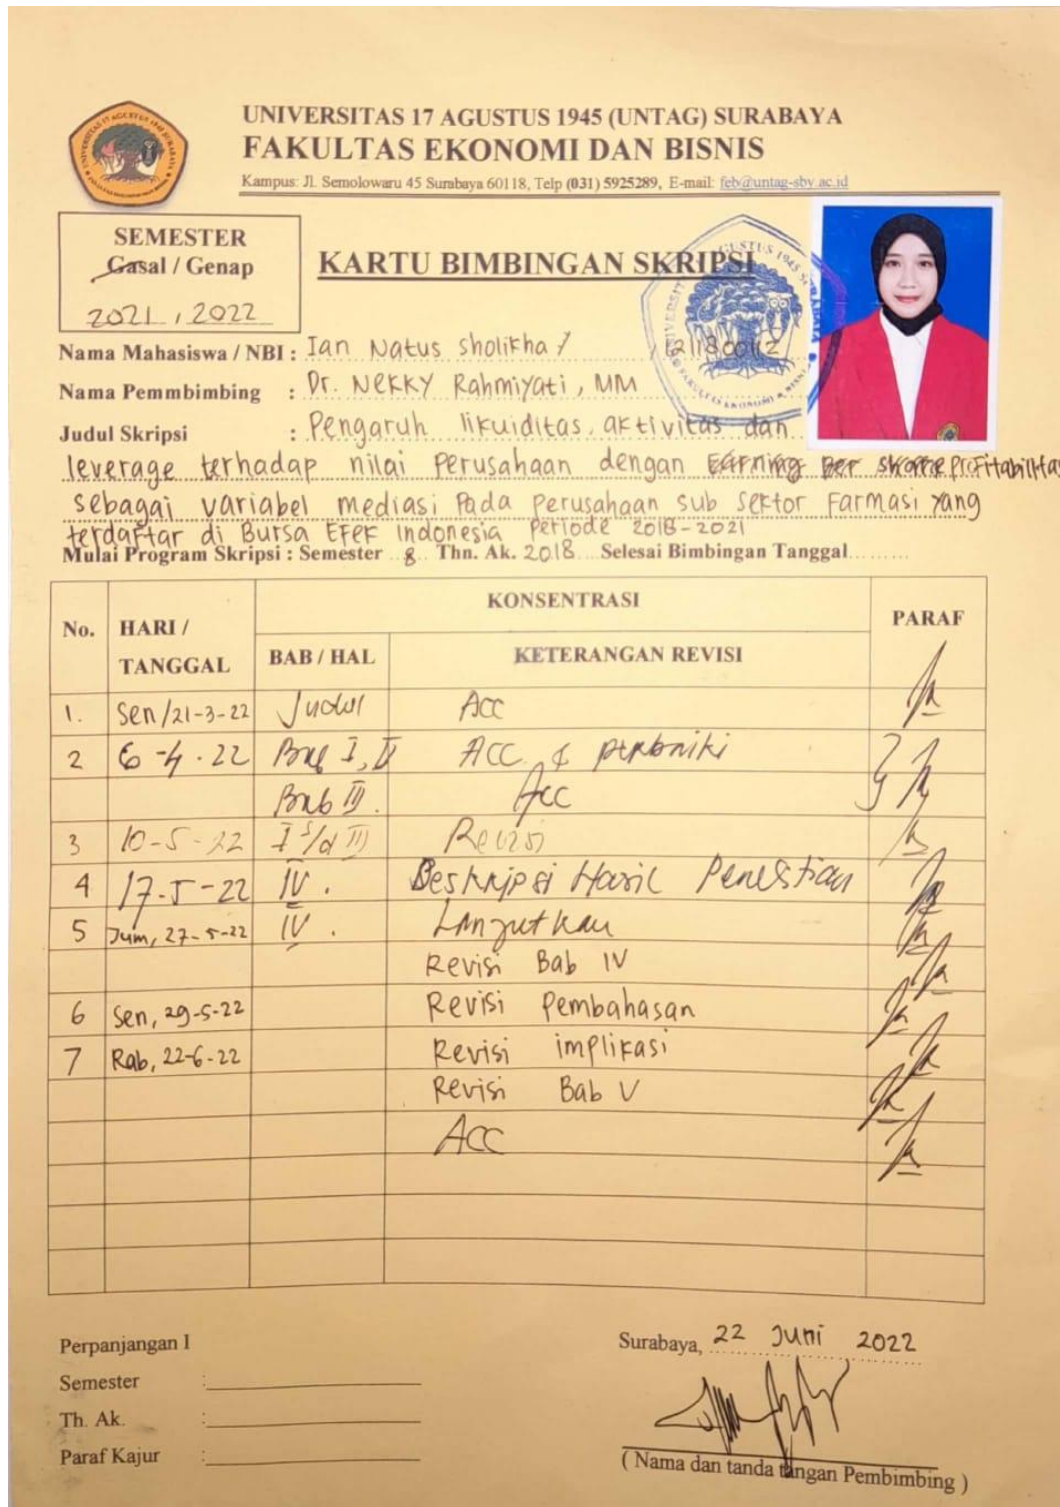 UNIVERSITAS 17 AGUSTUS 1945 (UNTAG) SURABAYA
FAKULTAS EKONOMI DAN BISNIS
Kampus: Jl. Semolowaru 45 Surabaya 60118, Telp (031) 5925289, E-mail: feb@untag-sby.ac.id
SEMESTER
Gasal / Genap
2021 , 2022
KARTU BIMBINGAN SKRIPSI
Nama Mahasiswa / NBI : Ian Natus Sholikha /
Nama Pemmbimbing : Dr. Nekky Rahmiyati, MM
Judul Skripsi : Pengaruh likuiditas, aktivitas dan
leverage terhadap nilai perusahaan dengan Earning Per Share profitabilitas
sebagai variabel mediasi Pada perusahaan sub sektor Farmasi yang
terdaftar di Bursa Efek Indonesia Periode 2018-2021
Mulai Program Skripsi : Semester 8 Thn. Ak. 2018 Selesai Bimbingan Tanggal
No. HARI / TANGGAL KONSENTRASI PARAF
BAB / HAL KETERANGAN REVISI
1. Sen/21-3-22 Judul Acc
2 6-4-22 Bab I, II ACC & perbaiki
Bab III. Acc
3 10-5-22 I s/d III Revisi
4 17-5-22 IV. Deskripsi Hasil Penelitian
5 Jum, 27-5-22 IV. Lanjutkan
Revisi Bab IV
6 Sen, 29-5-22 Revisi Pembahasan
7 Rab, 22-6-22 Revisi implikasi
Revisi Bab V
ACC
Perpanjangan I
Semester :
Th. Ak. :
Paraf Kajur :
Surabaya, 22 Juni 2022
( Nama dan tanda tangan Pembimbing )